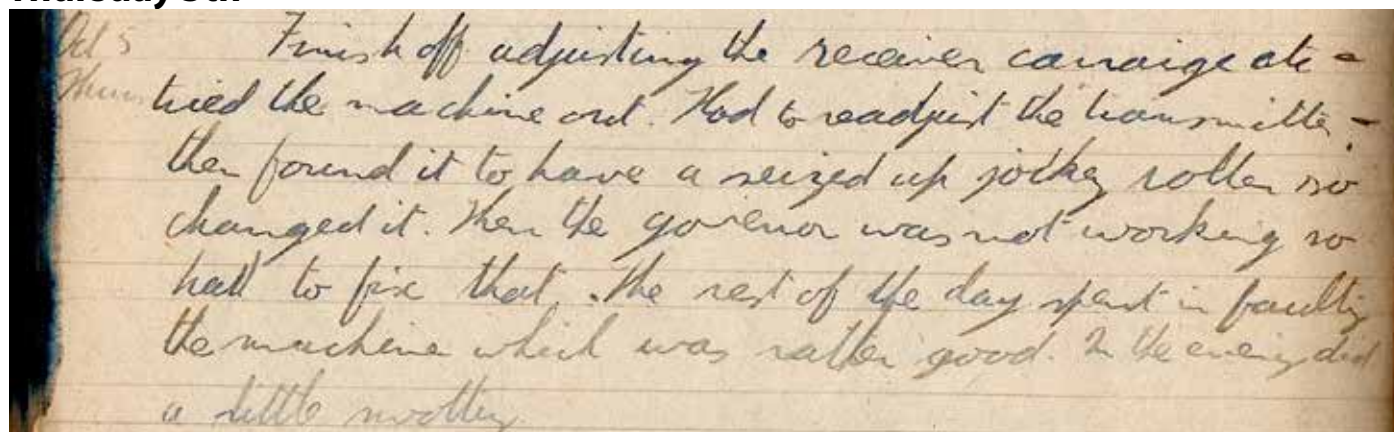 Thursday 5th
Oct 5 Finish off adjusting the receiver carraige etc -
Thurs tried the machine out. Had to readjust the transmitter -
then found it to have a seized up jockey roller so
changed it. Then the govenor was not working so
had to fix that. The rest of the day spent in faulting
the machine which was rather good. In the evening did
a little swotting.